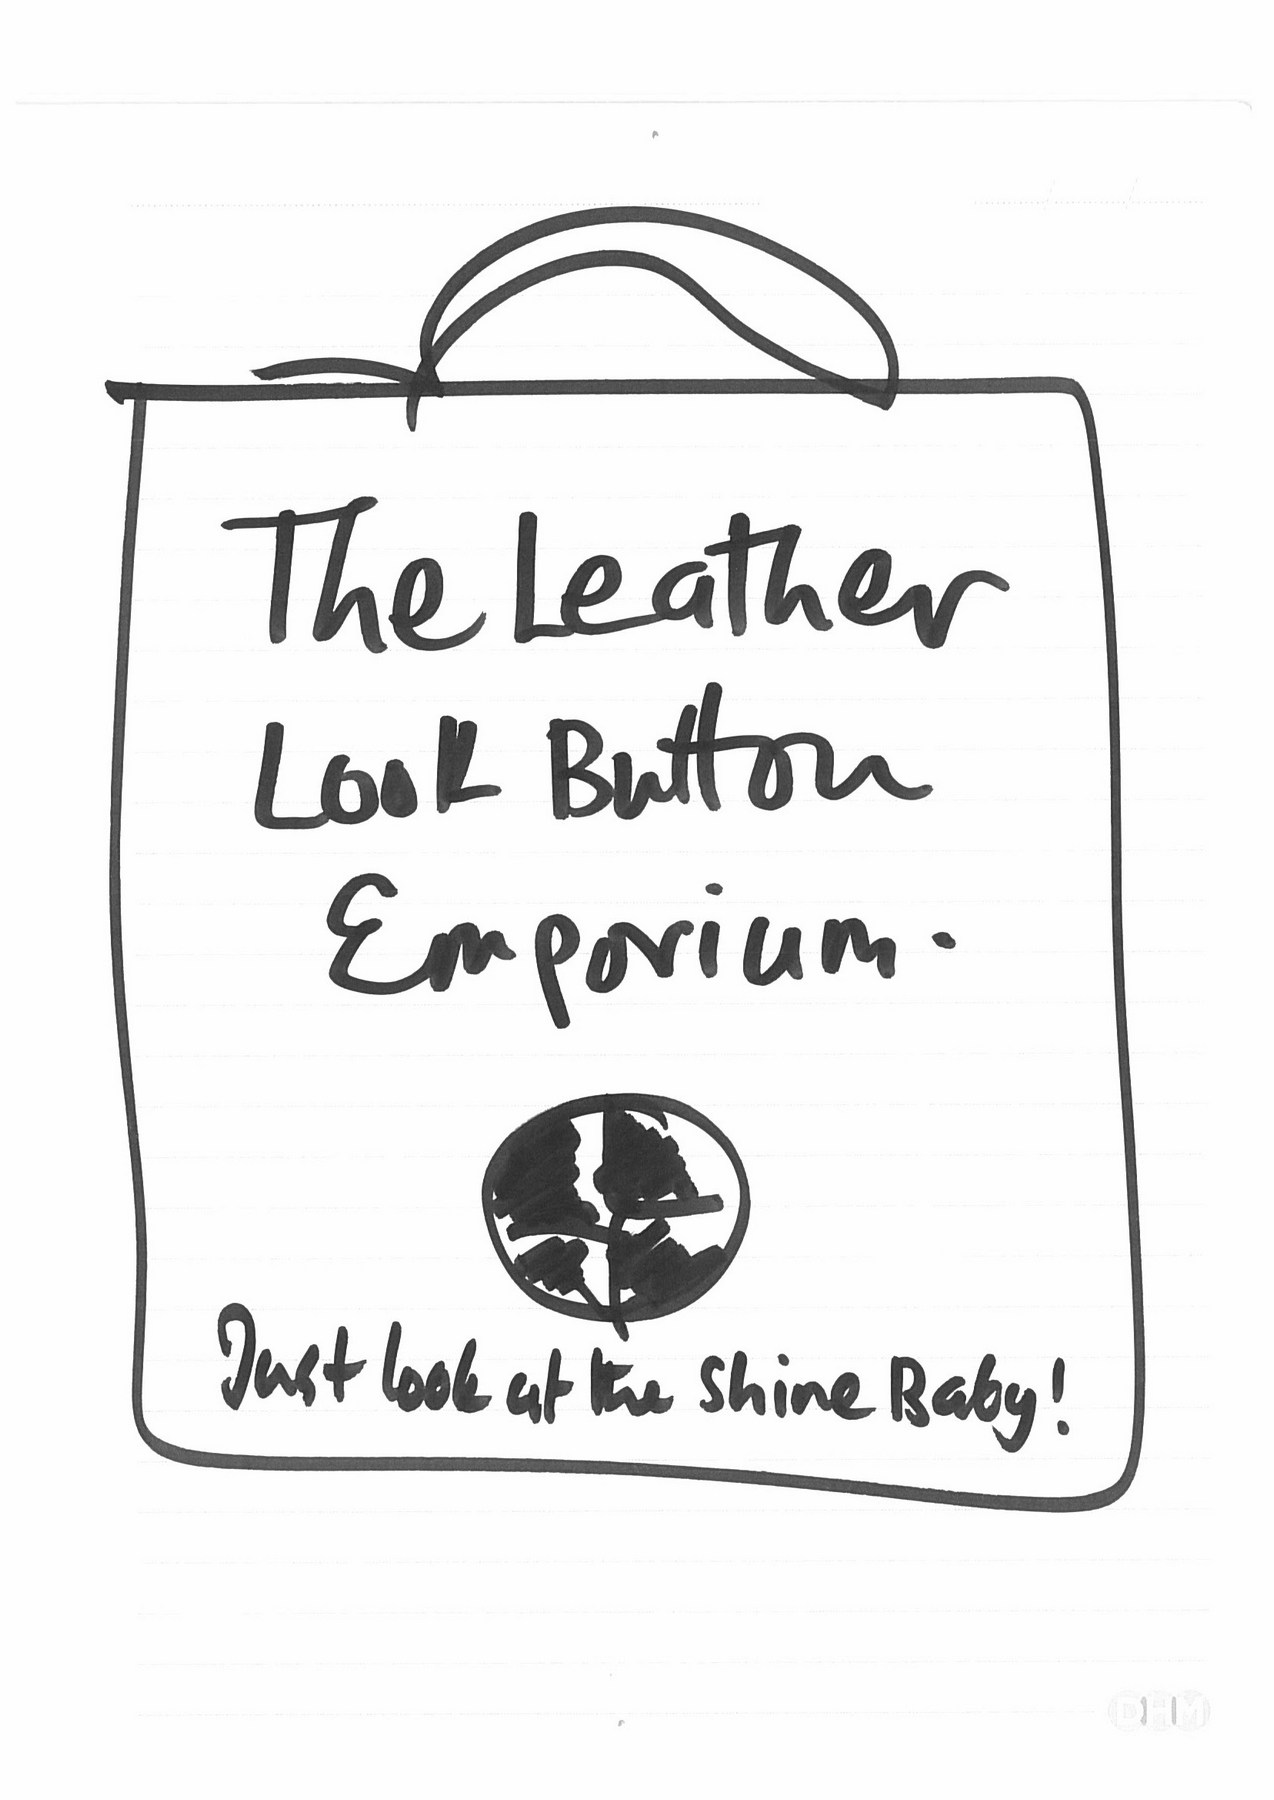 The Leather
Look Button
Emporium.
Just look at the Shine Baby!
DHM